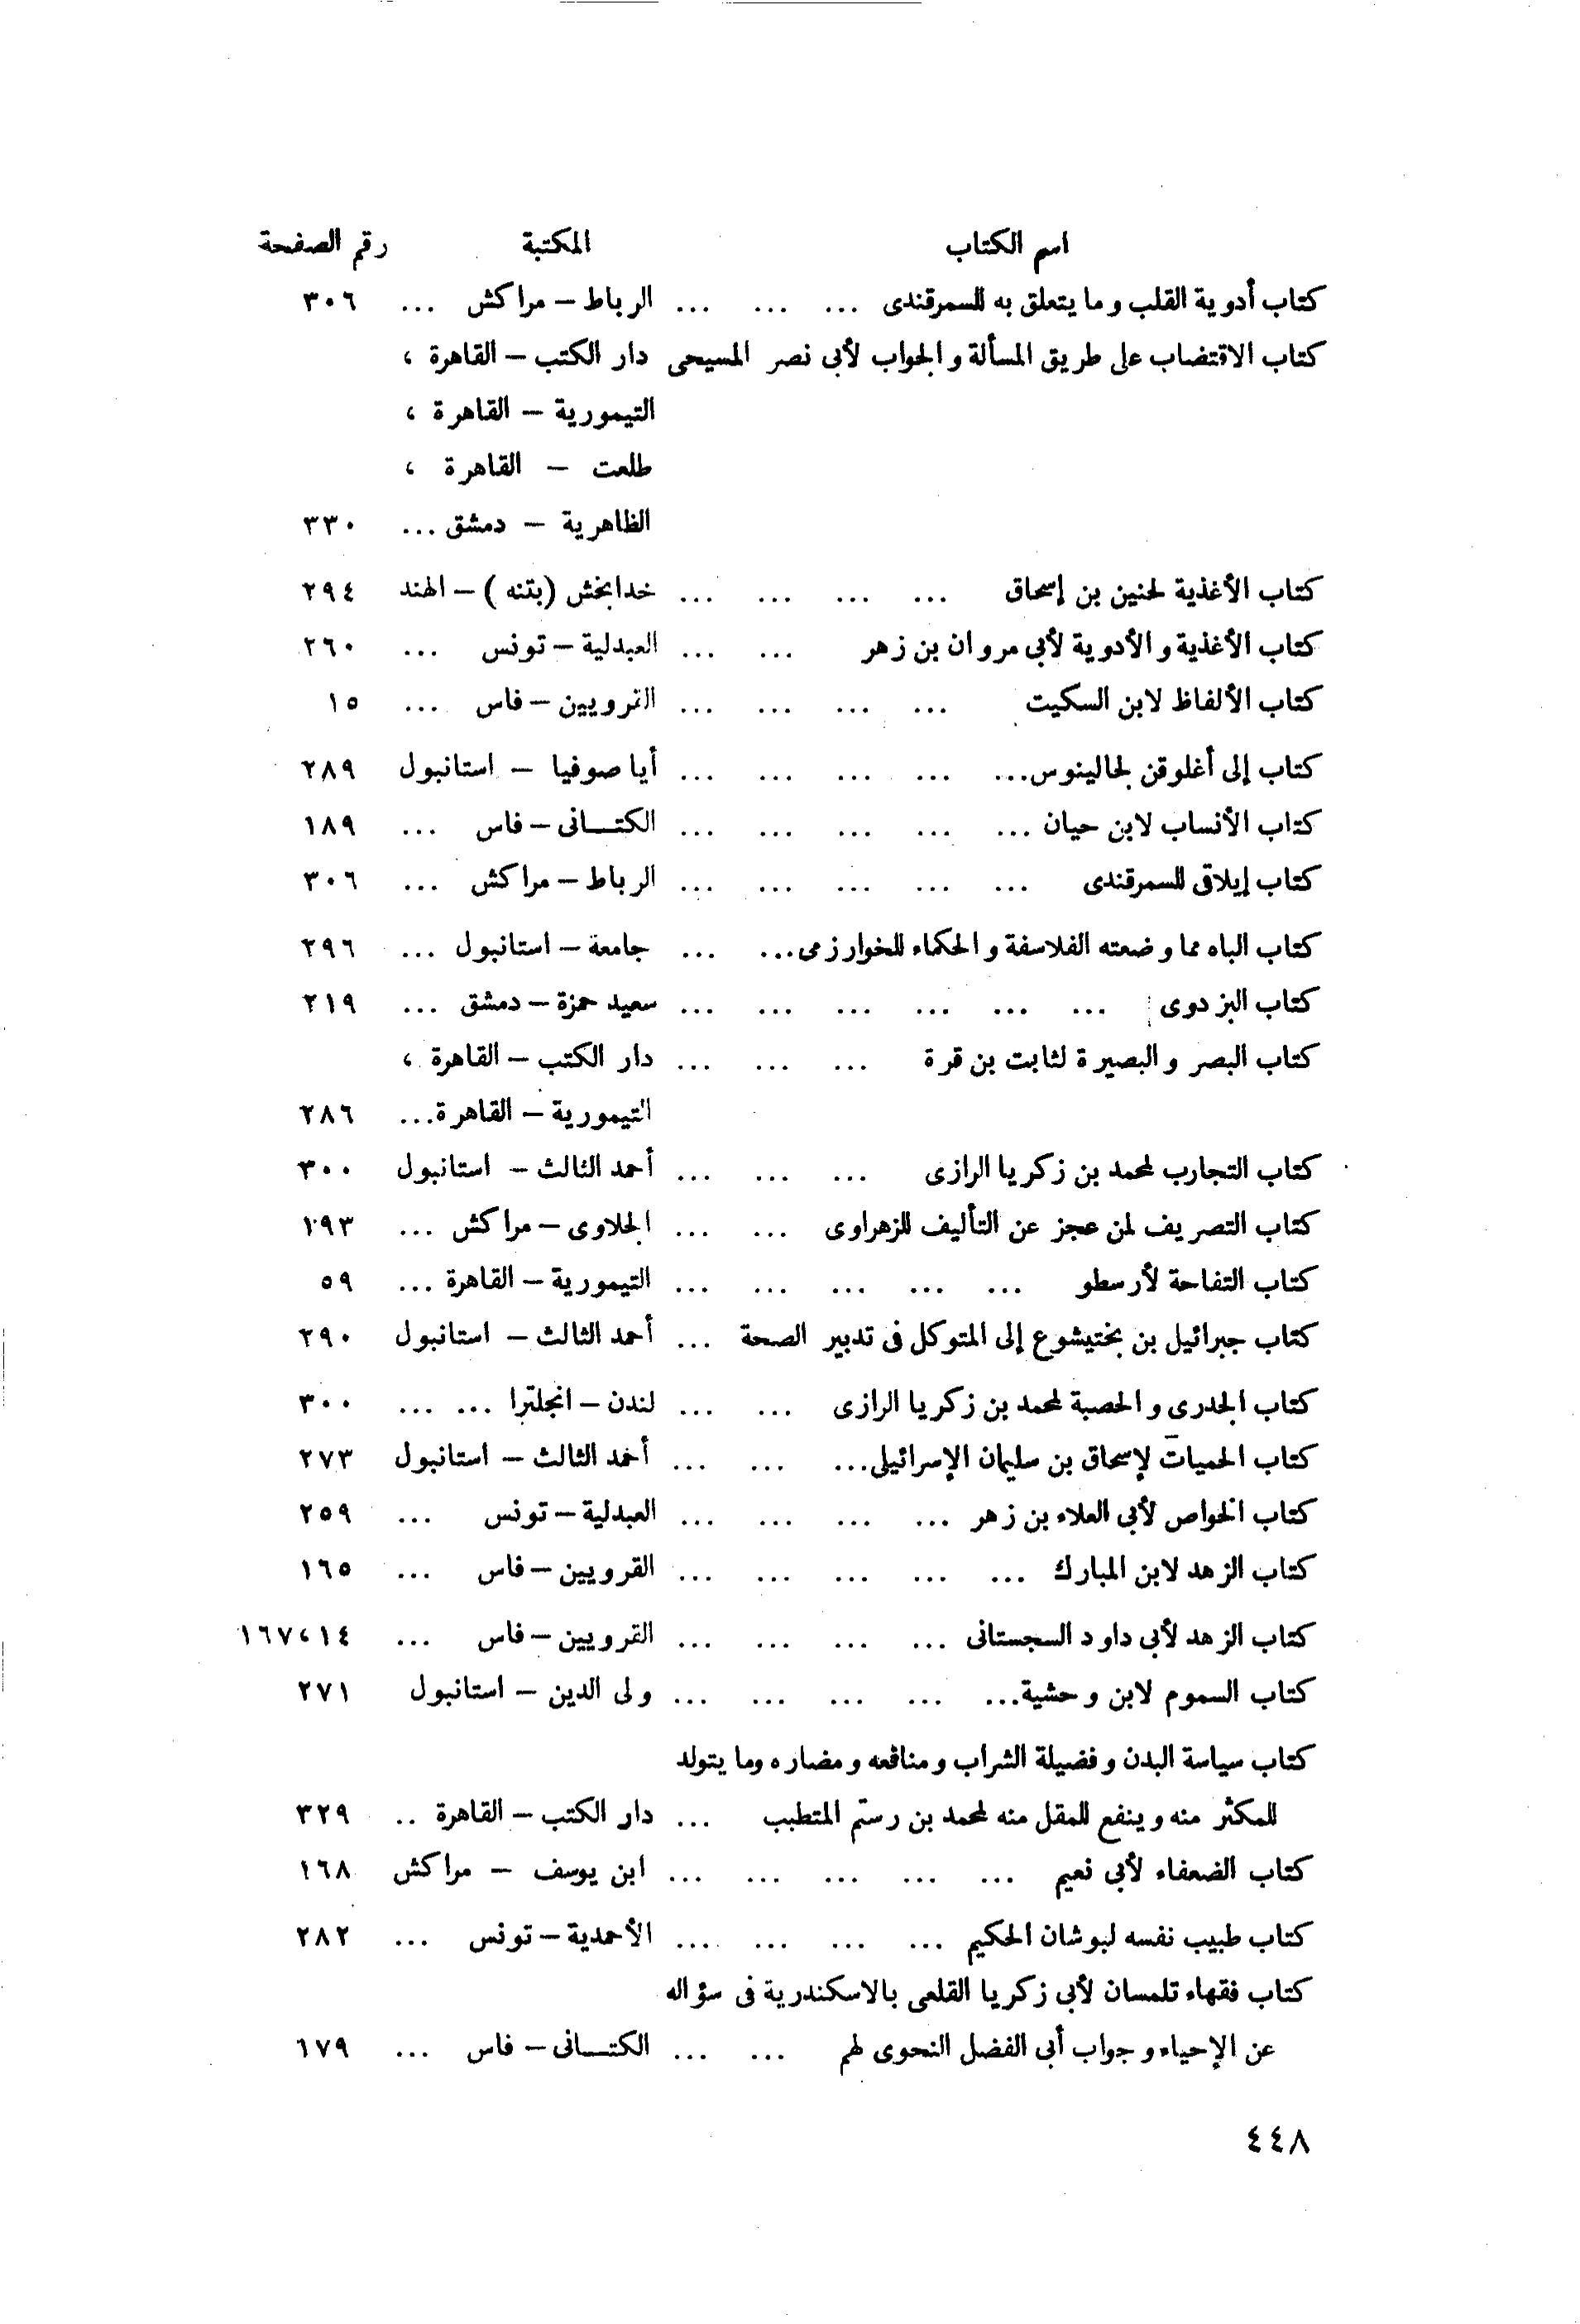 اسم الكتاب المكتبة رقم الصفحة
كتاب أدوية القلب وما يتعلق به للسمرقندى ... ... ... الرباط – مراكش ... ٣٠٦
كتاب الاقتضاب على طريق المسألة والجواب لأبى نصر المسيحى دار الكتب – القاهرة ،
التيمورية – القاهرة ،
طلعت – القاهرة ،
الظاهرية – دمشق ... ٣٣٠
كتاب الأغذية لحنين بن إسحاق ... ... ... ... خدابخش (بتنه) – الهند ٢٩٤
كتاب الأغذية والأدوية لأبى مروان بن زهر ... ... ... العبدلية – تونس ... ٢٦٠
كتاب الألفاظ لابن السكيت ... ... ... ... القرويين – فاس ... ١٥
كتاب إلى أغلوقن لجالينوس... ... ... ... ... أيا صوفيا – استانبول ٢٨٩
كتاب الأنساب لابن حيان ... ... ... ... ... الكتــانى – فاس ... ١٨٩
كتاب إيلاقى للسمرقندى ... ... ... ... ... الرباط – مراكش ... ٣٠٦
كتاب الباه مما وضعته الفلاسفة والحكماء للخوارزمى... ... جامعة – استانبول ... ٢٩٦
كتاب البزدوى ... ... ... ... ... ... سعيد حمزة – دمشق ... ٢١٩
كتاب البصر والبصيرة لثابت بن قرة ... ... ... دار الكتب – القاهرة ،
التيمورية – القاهرة... ٢٨٦
كتاب التجارب لمحمد بن زكريا الرازى ... ... ... أحمد الثالث – استانبول ٣٠٠
كتاب التصريف لمن عجز عن التأليف للزهراوى ... ... الجلاوى – مراكش ... ١٩٣
كتاب التفاحة لأرسطو ... ... ... ... ... التيمورية – القاهرة ... ٥٩
كتاب جبرائيل بن بختيشوع إلى المتوكل فى تدبير الصحة ... أحمد الثالث – استانبول ٢٩٠
كتاب الجدرى والحصبة لمحمد بن زكريا الرازى ... ... لندن – انجلترا ... ... ٣٠٠
كتاب الحميات لإسحاق بن سليمان الإسرائيلى... ... ... أحمد الثالث – استانبول ٢٧٣
كتاب الخواص لأبى العلاء بن زهر ... ... ... ... العبدلية – تونس ... ٢٥٩
كتاب الزهد لابن المبارك ... ... ... ... ... القرويين – فاس ... ١٦٥
كتاب الزهد لأبى داود السجستانى ... ... ... ... القرويين – فاس ... ١٤،١٦٧
كتاب السموم لابن وحشية... ... ... ... ... ولى الدين – استانبول ٢٧١
كتاب سياسة البدن وفضيلة الشراب ومنافعه ومضاره وما يتولد
للمكثر منه وينفع للمقل منه لمحمد بن رستم المتطبب ... دار الكتب – القاهرة .. ٣٢٩
كتاب الضعفاء لأبى نعيم ... ... ... ... ... ابن يوسف – مراكش ١٦٨
كتاب طبيب نفسه لبوشان الحكيم ... ... ... .... الأحمدية – تونس ... ٢٨٢
كتاب فقهاء تلمسان لأبى زكريا القلعى بالاسكندرية فى سؤاله
عن الإحياء وجواب أبى الفضل النحوى لهم ... ... الكتــانى – فاس ... ١٧٩
٤٤٨